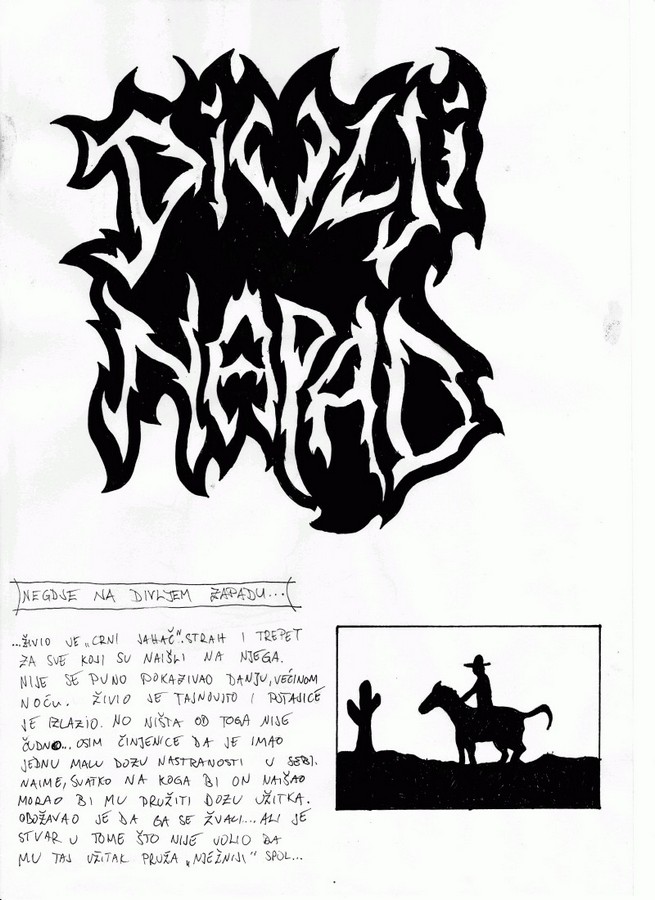 DIVLJI
NAPAD
NEGDJE NA DIVLJEM ZAPADU...
...ŽIVIO JE „CRNI JAHAČ“. STRAH I TREPET
ZA SVE KOJI SU NAIŠLI NA NJEGA.
NIJE SE PUNO POKAZIVAO DANJU, VEĆINOM
NOĆU. ŽIVIO JE TAJNOVITO I POTAJICE
JE IZLAZIO. NO NIŠTA OD TOGA NIJE
ČUDNO... OSIM ČINJENICE DA JE IMAO
JEDNU MALU DOZU NASTRANOSTI U SEBI.
NAIME, SVATKO NA KOGA BI ON NAIŠAO
MORAO BI MU PRUŽITI DOZU UŽITKA.
OBOŽAVAO JE DA GA SE ŽVALI... ALI JE
STVAR U TOME ŠTO NIJE VOLIO DA
MU TAJ UŽITAK PRUŽA „NJEŽNIJI“ SPOL...